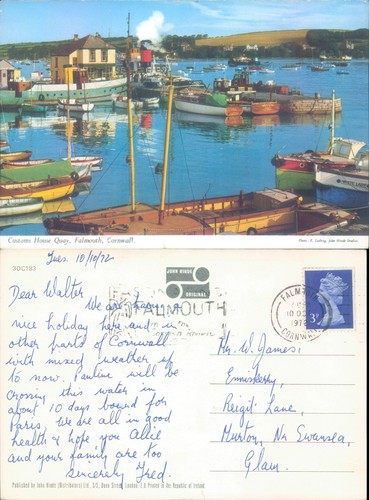 Customs House Quay, Falmouth, Cornwall.
Photo: E. Ludwig, John Hinde Studios
3DC183
Tues. 10/10/72
JOHN HINDE
ORIGINAL
FALMOUTH
CORNWALL
3P
Dear Walter
We are having
nice holiday here and in
other parts of Cornwall
with mixed weather up
to now. Pauline will be
crossing this water in
about 10 days bound for
Paris. We are all in good
health & hope you Allie
and your family are too
Sincerely Fred.
Mr. W. James,
Reigit Lane,
Murton, Nr Swansea,
Glam.
Published by John Hinde (Distributors) Ltd., London, Printed in the Republic of Ireland.